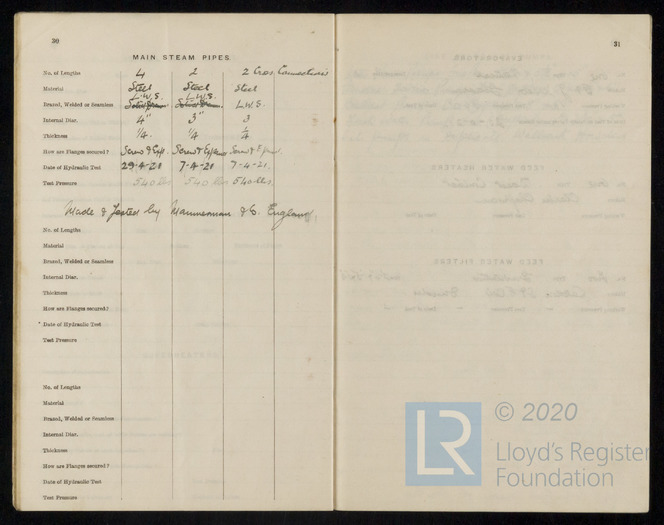 30
MAIN STEAM PIPES.
No. of Lengths 4 2 2 Cross Connections
Material Steel Steel Steel
L.W.S. L.W.S.
Brazed, Welded or Seamless L.W.S.
Internal Diar. 4" 3" 3
Thickness 1/4. 1/4 1/4
How are Flanges secured? Screw & Screw & Screw &
Date of Hydraulic Test 29-4-21 7-4-21 7-4-21.
Test Pressure 540 lbs 540 lbs 540 lbs.
Made & Tested by & Co. England.
No. of Lengths
Material
Brazed, Welded or Seamless
Internal Diar.
Thickness
How are Flanges secured?
Date of Hydraulic Test
Test Pressure
No. of Lengths
Material
Brazed, Welded or Seamless
Internal Diar.
Thickness
How are Flanges secured?
Date of Hydraulic Test
Test Pressure
31
LR © 2020
Lloyd's Register
Foundation